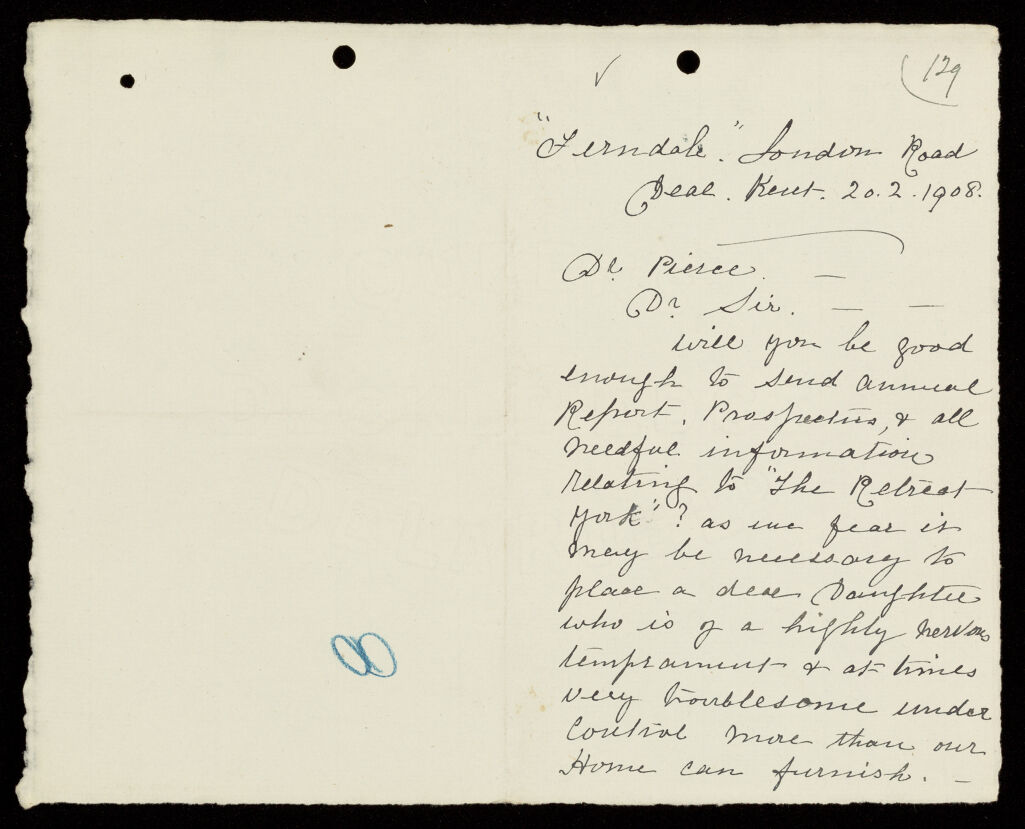 129
"Ferndale". London Road
Deal. Kent. 20.2.1908.
Dr Pierce. —
Dr Sir. — —
Will you be good
enough to send annual
Report, Prospectus, & all
needful information
relating to "The Retreat
York"? as we fear it
may be necessary to
place a dear Daughter
who is of a highly nervous
temprament & at times
very troublesome under
Control more than our
Home can furnish. —